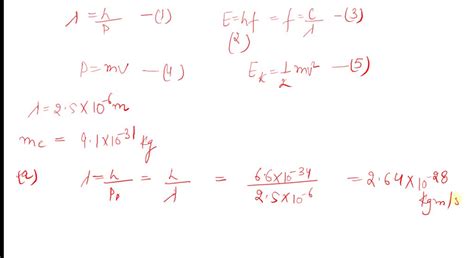 λ = h/P —(1) E = hf = f = c/λ —(3)
(2)
P = mv —(4) E_k = 1/2 mv² —(5)
λ = 2.5×10^-6 m
m_c = 9.1×10^-31 kg
(a) λ = h/P_p = h/λ = 6.6×10^-34 / 2.5×10^-6 = 2.64×10^-28
kgm/s